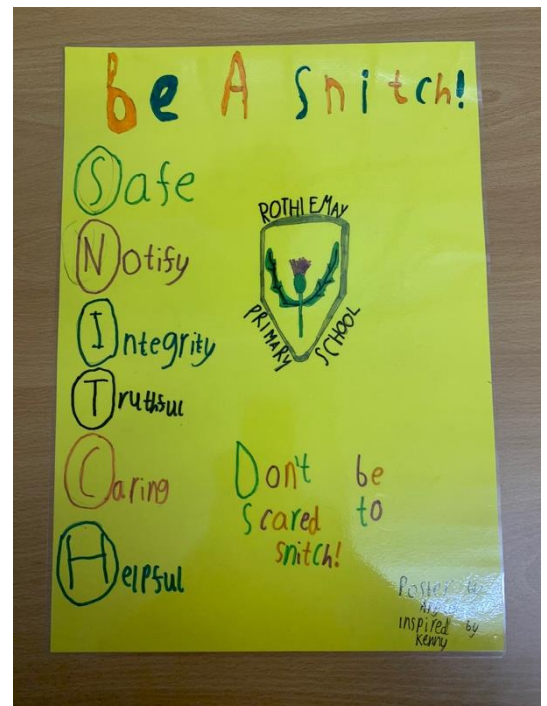 Be A Snitch!
Safe
Notify
Integrity
Truthful
Caring
Helpful
ROTHIEMAY
PRIMARY SCHOOL
Don't be
scared to
snitch!
Poster
inspired by
Kenny